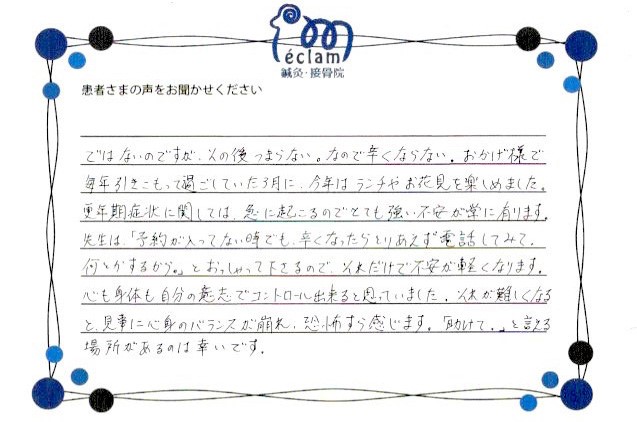 éclam
鍼灸・接骨院
患者さまの声をお聞かせください
ではないのですが、その後つまらない。なので辛くならない。おかげ様で
毎年引きこもって過ごしていた3月に、今年はランチやお花見を楽しめました。
更年期症状に関しては、急に起こるのでとても強い不安が常に有ります。
先生は、「予約が入ってない時でも、辛くなったらとりあえず電話してみて。
何とかするから。」とおっしゃって下さるので、それだけで不安が軽くなります。
心も身体も自分の意志でコントロール出来ると思っていました。それが難しくなる
と、見事に心身のバランスが崩れ、恐怖すら感じます。「助けて。」と言える
場所があるのは幸いです。